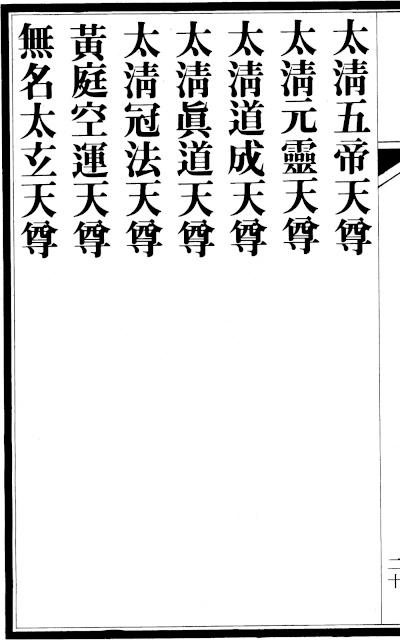 太淸五帝天尊
太淸元靈天尊
太淸道成天尊
太淸眞道天尊
太淸冠法天尊
黃庭空運天尊
無名太玄天尊
二十